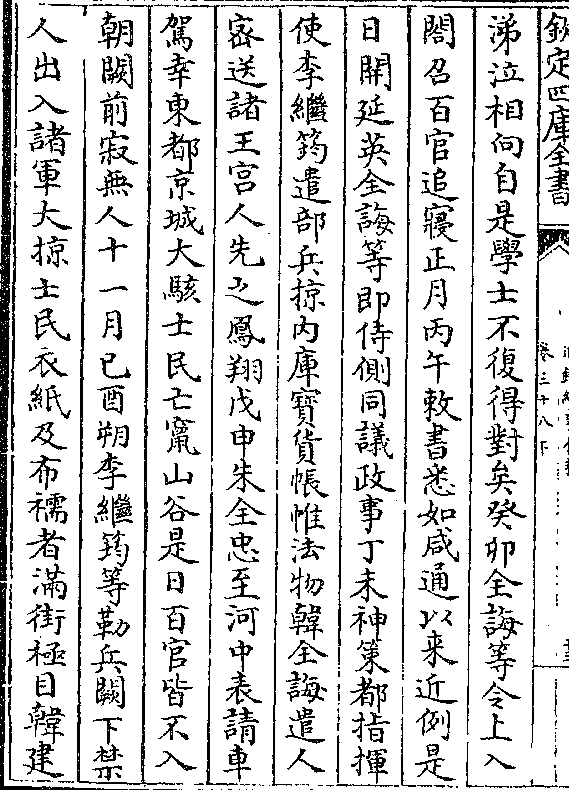 欽定四庫全書
卷三十八下
涕泣相向自是學士不復得對矣癸卯全誨等令上入
閤召百官追寢正月丙午敕書悉如咸通以来近例是
日開延英全誨等即侍側同議政事丁未神策都指揮
使李繼筠遣部兵掠内庫寶貨帳帷法物韓全誨遣人
宻送諸王宫人先之鳳翔戊申朱全忠至河中表請車
駕幸東都京城大駭士民亡竄山谷是日百官皆不入
朝闕前寂無人十一月己酉朔李繼筠等勒兵闕下禁
人出入諸軍大掠士民衣紙及布襦者滿街極目韓建